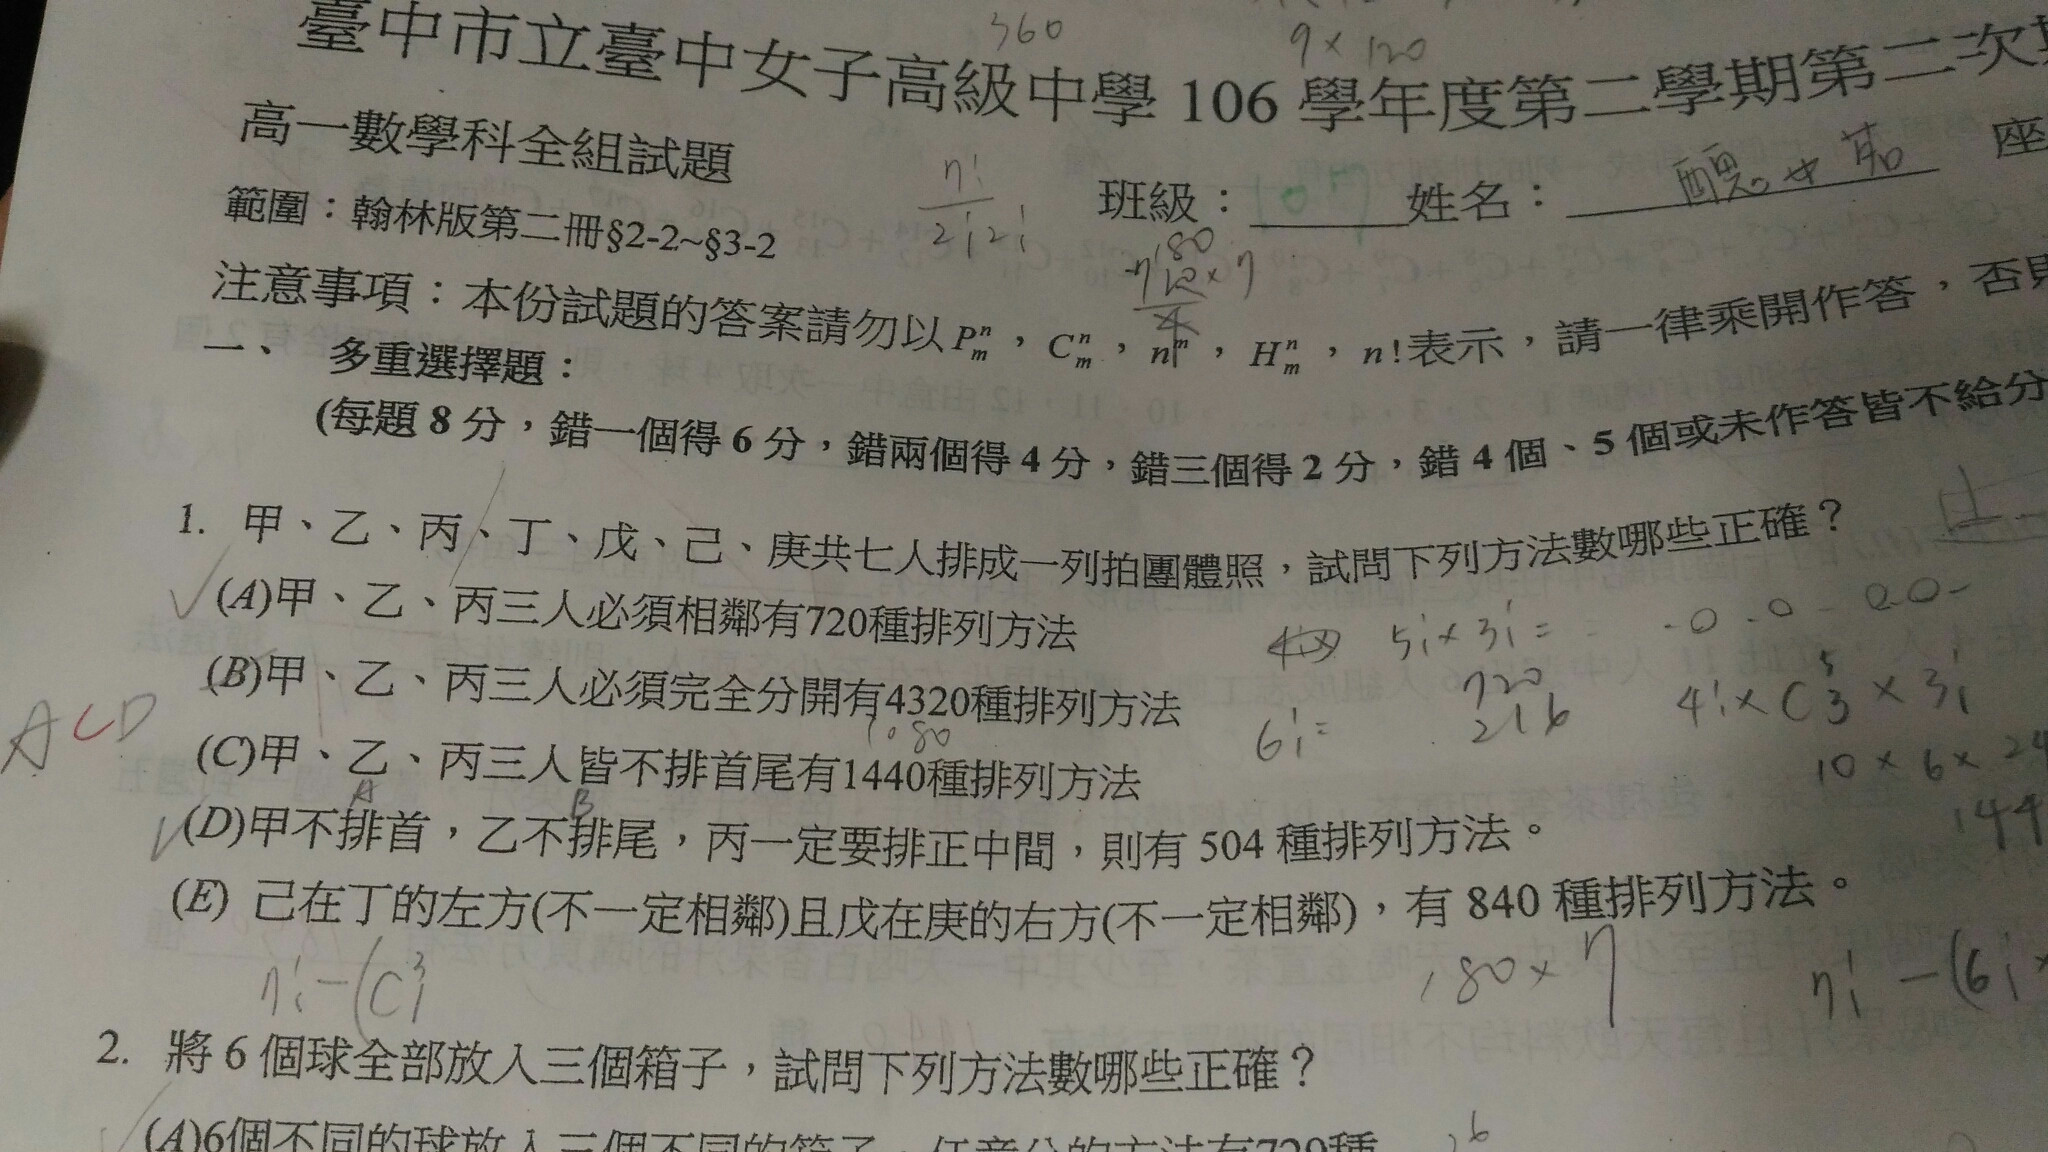 360
9 × 120
臺中市立臺中女子高級中學 106 學年度第二學期第二次
高一數學科全組試題
班級： 姓名： 座
範圍：翰林版第二冊§2-2~§3-2
7!
2!2!
180
注意事項：本份試題的答案請勿以 P^n_m，C^n_m，n^m，H^n_m，n!表示，請一律乘開作答，否則
一、 多重選擇題：
(每題 8 分，錯一個得 6 分，錯兩個得 4 分，錯三個得 2 分，錯 4 個、5 個或未作答皆不給分
1. 甲、乙、丙、丁、戊、己、庚共七人排成一列拍團體照，試問下列方法數哪些正確？
(A)甲、乙、丙三人必須相鄰有720種排列方法
5! × 3! =
720
216
6! =
(B)甲、乙、丙三人必須完全分開有4320種排列方法
4! × C^5_3 × 3!
1080
10 × 6 × 24
144
ACD
(C)甲、乙、丙三人皆不排首尾有1440種排列方法
A B
(D)甲不排首，乙不排尾，丙一定要排正中間，則有 504 種排列方法。
(E) 己在丁的左方(不一定相鄰)且戊在庚的右方(不一定相鄰)，有 840 種排列方法。
7! - (C^3_1
180 × 7
7! - (6! ×
2. 將 6 個球全部放入三個箱子，試問下列方法數哪些正確？
(A)6個不同的球放入三個不同的箱子，任意分的方法有729種